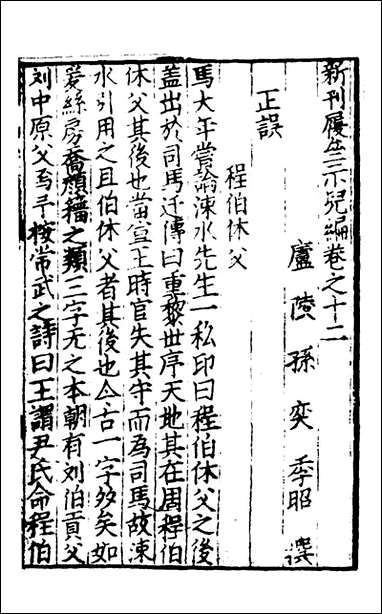 新刊履齋示兒編卷之十二
廬陵孫奕季昭撰
正誤
程伯休父
馬大年嘗論涑水先生一私印曰程伯休父之後
盖出於司馬迁傳曰重黎世序天地其在周程伯
休父其後也當宣王時官失其守而為司馬故涑
水引用之且伯休父者其後也今古一字多矣如
爰絲房喬顔籀之類三字无之本朝有刘伯貢父
刘中原父为乎按常武之詩曰王謂尹氏命程伯